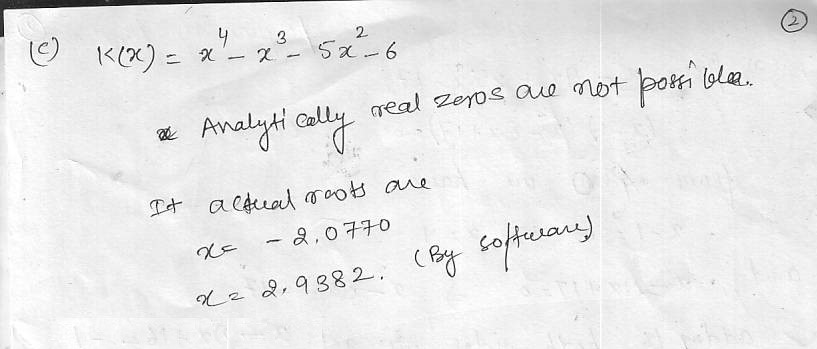 ②
(c) K(x) = x⁴ - x³ - 5x² - 6
Analytically real zeros are not possible.
It actual roots are
x = -2.0770
x = 2.9382. (By software)